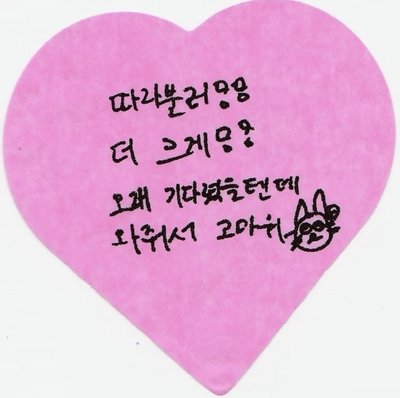 따라불러
더 크게
오래 기다렸을텐데
와줘서 고마워